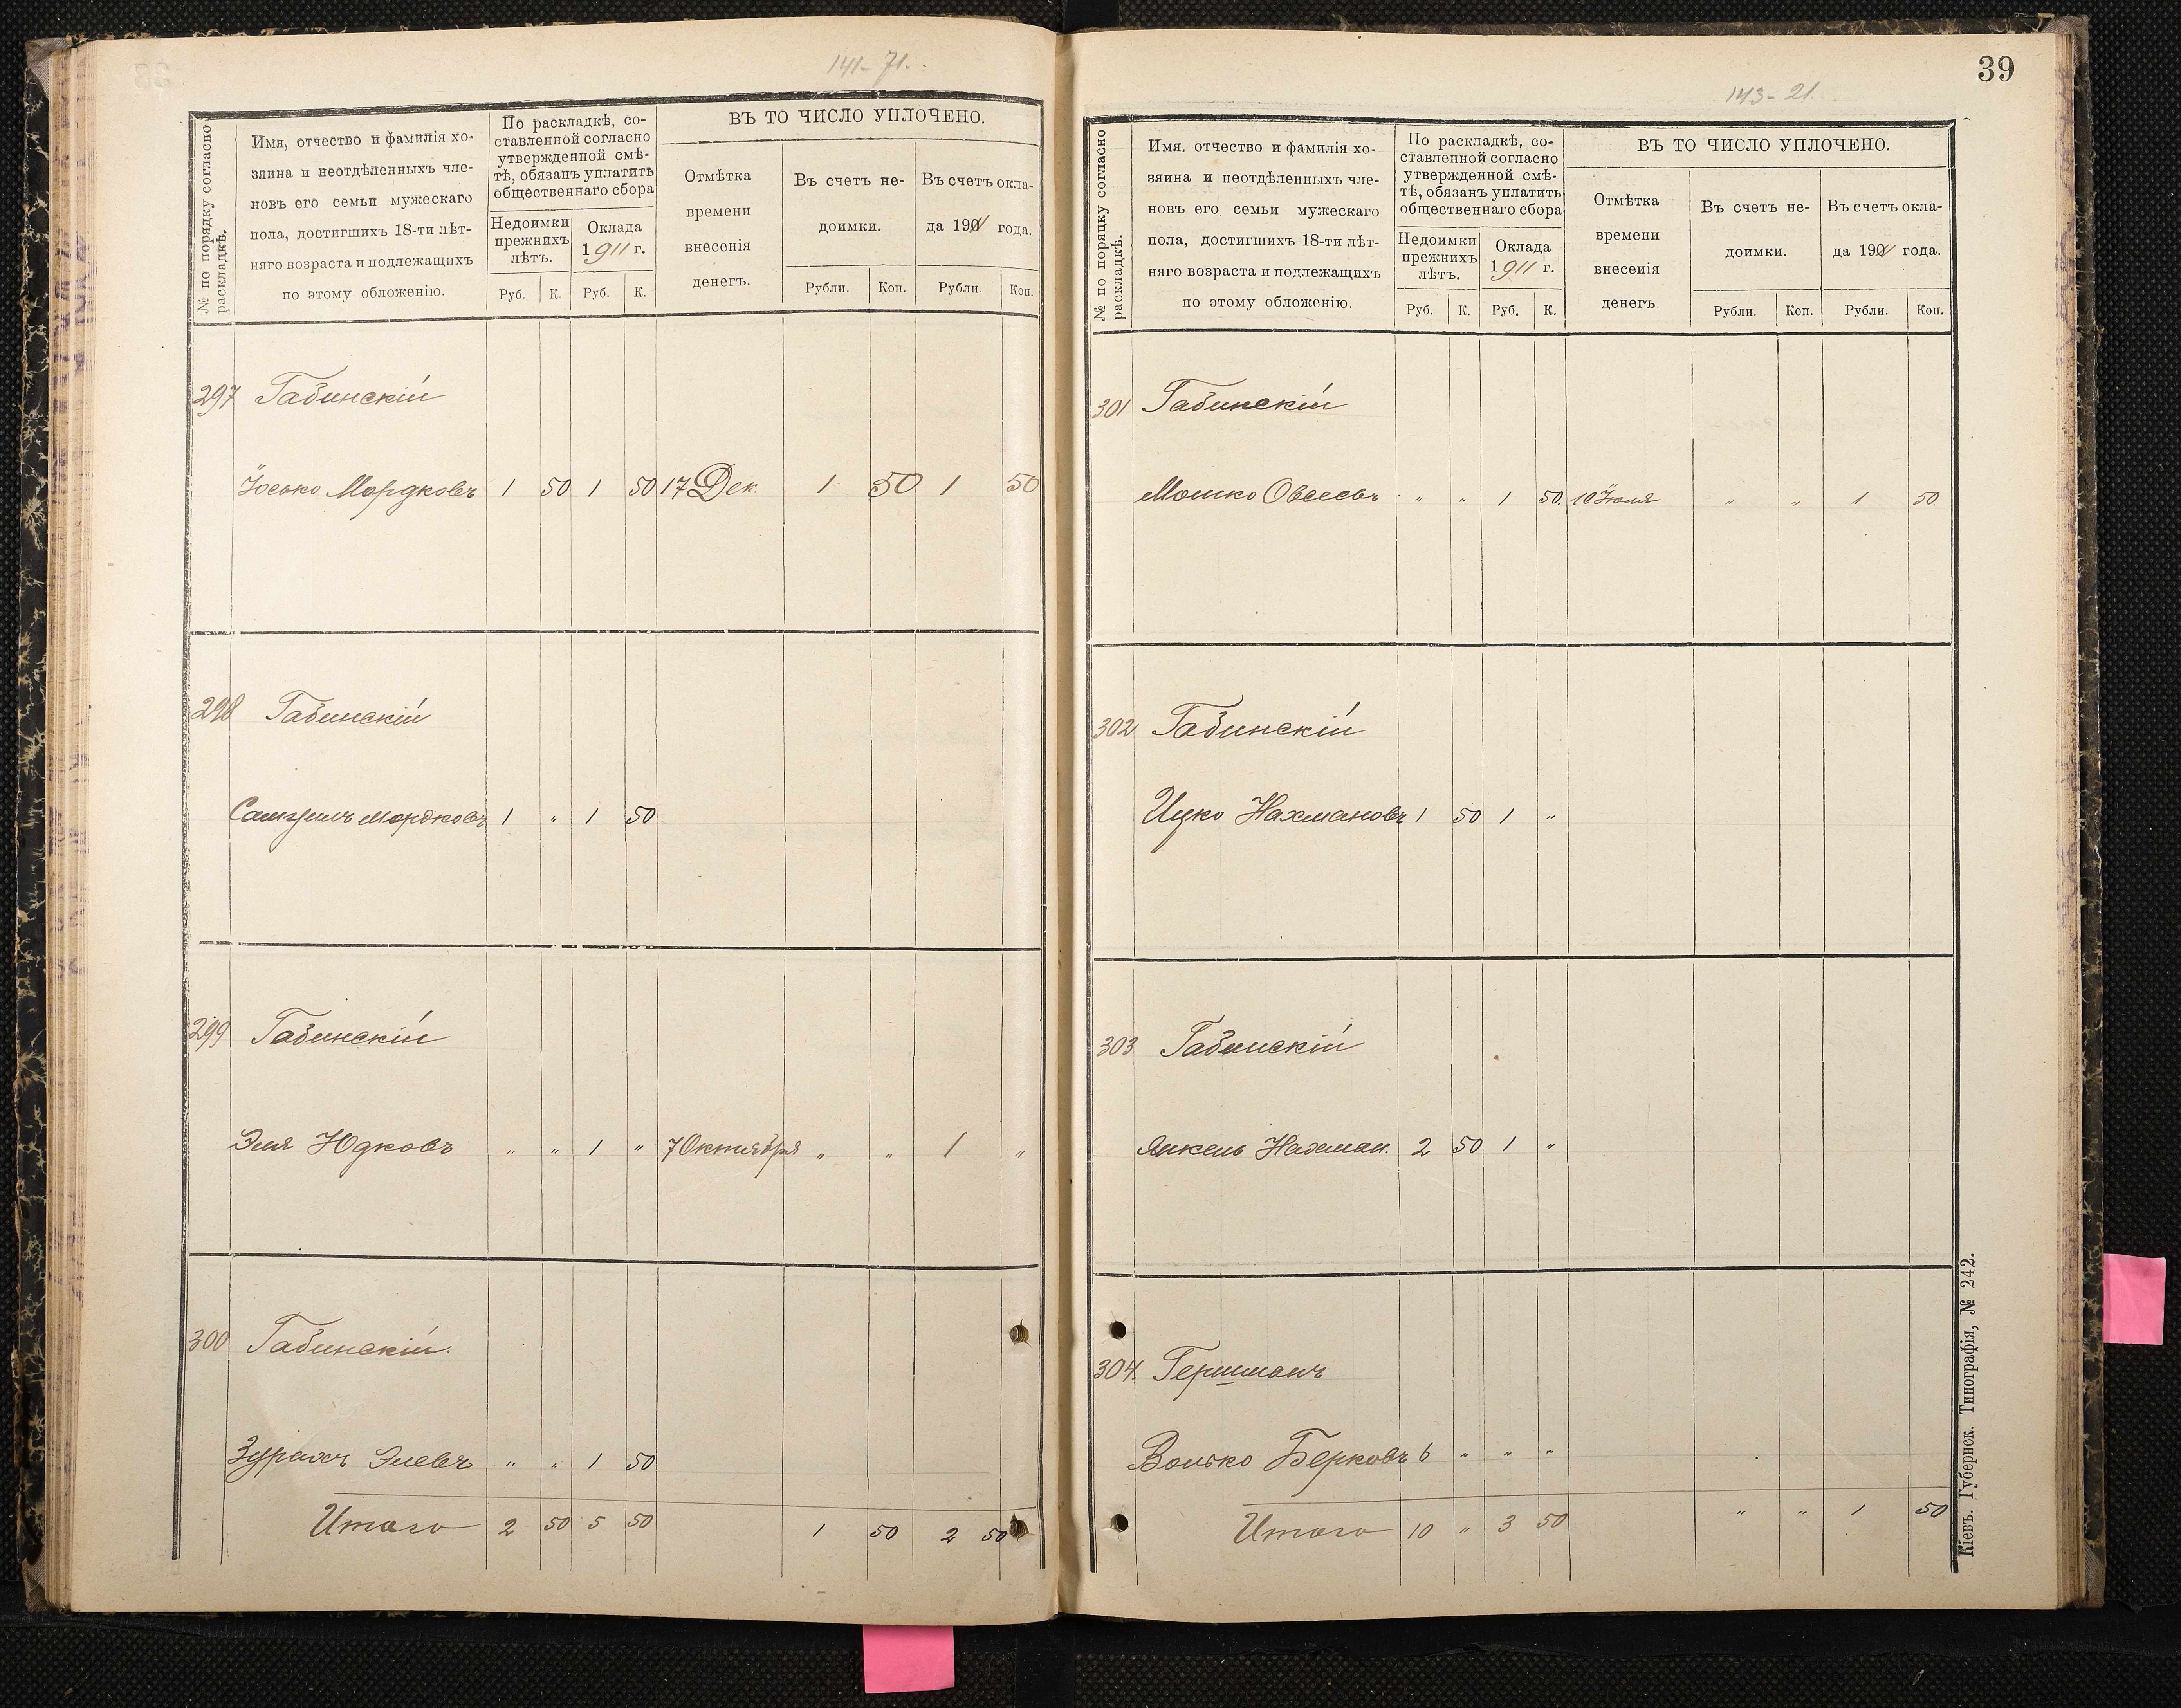 141-71.
№ по порядку согласно
раскладкѣ.
Имя, отчество и фамилія хо-
зяина и неотдѣленныхъ чле-
новъ его семьи мужескаго
пола, достигшихъ 18-ти лѣт-
няго возраста и подлежащихъ
по этому обложенію.
По раскладкѣ, со-
ставленной согласно
утвержденной смѣ-
тѣ, обязанъ уплатить
общественнаго сбора
Недоимки
прежнихъ
лѣтъ.
Оклада
1911 г.
Руб. К. Руб. К.
ВЪ ТО ЧИСЛО УПЛОЧЕНО.
Отмѣтка
времени
внесенія
денегъ.
Въ счетъ не-
доимки.
Въ счетъ окла-
да 1911 года.
Рубли. Коп. Рубли. Коп.
297 Габинскій
Іосько Мордковъ 1 50 1 50 17 Дек. 1 50 1 50
298 Габинскій
Мордковъ 1 " 1 50
299 Габинскій
Эля Юдковъ " " 1 " 7 Октября " " 1 "
300 Габинскій.
Зурахъ Элевъ " " 1 50
Итого 2 50 5 50 1 50 2 50
39
143-21.
№ по порядку согласно
раскладкѣ.
Имя, отчество и фамилія хо-
зяина и неотдѣленныхъ чле-
новъ его семьи мужескаго
пола, достигшихъ 18-ти лѣт-
няго возраста и подлежащихъ
по этому обложенію.
По раскладкѣ, со-
ставленной согласно
утвержденной смѣ-
тѣ, обязанъ уплатить
общественнаго сбора
Недоимки
прежнихъ
лѣтъ.
Оклада
1911 г.
Руб. К. Руб. К.
ВЪ ТО ЧИСЛО УПЛОЧЕНО.
Отмѣтка
времени
внесенія
денегъ.
Въ счетъ не-
доимки.
Въ счетъ окла-
да 1911 года.
Рубли. Коп. Рубли. Коп.
301 Габинскій
Мошко Овсеевъ " " 1 50. 10 Іюля " " 1 50.
302 Габинскій
Ицко Нахмановъ 1 50 1 "
303 Габинскій
Янкель Нахман. 2 50 1 "
304. Гершманъ
Волько Берковъ 6 " " "
Итого 10 " 3 50 " " 1 50
Кіевъ. Губернск. Типографія, № 242.